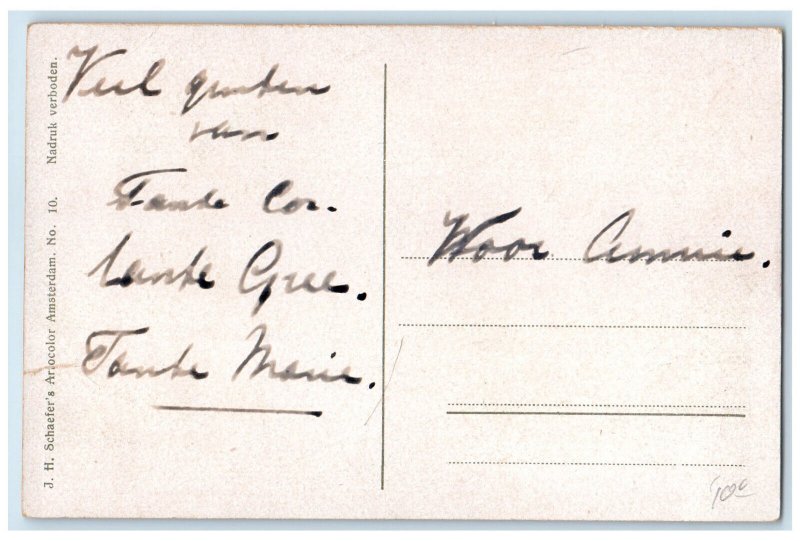 Veel groeten
van
Tante Cor.
tante Gree.
Tante Marie.
Voor Annie.
J. H. Schaefer's Artocolor Amsterdam. No. 10. Nadruk verboden.